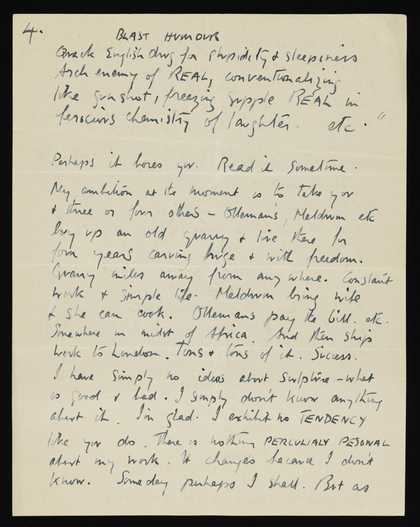 4.
BLAST HUMOUR
Quack English drug for stupidity & sleepiness
Arch enemy of REAL, conventionalizing
like gunshot, freezing supple REAL in
ferocious chemistry of laughter. etc."
Perhaps it bores you. Read it sometime.
My ambition at the moment is to take you
& three or four others – Ottemans, Meldrum etc
buy up an old quarry & live there for
four years carving huge & with freedom.
Quarry miles away from anywhere. Constant
work & simple life. Meldrum bring wife
& she can cook. Ottemans pay the bill. etc.
Somewhere in midst of Africa. And then ship
work to London. Tons & tons of it. Success.
I have simply no ideas about sculpture – what
is good & bad. I simply don't know anything
about it. I'm glad. I exhibit no TENDENCY
like you do. There is nothing PERCULIALY PESONAL
about my work. It changes because I don't
know. Someday perhaps I shall. But as